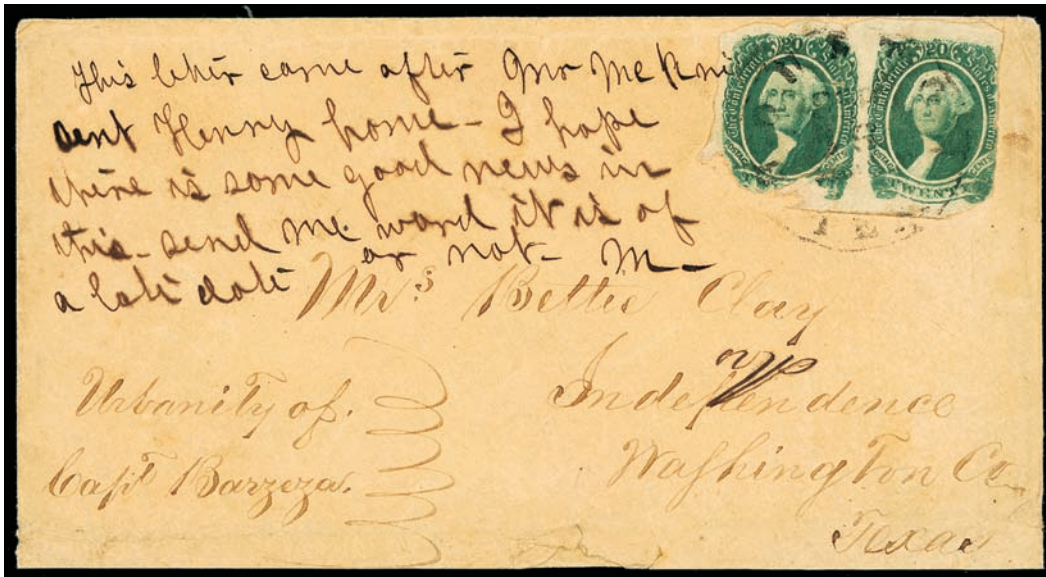 This letter came after Mr McKni
sent Henry home - I hope
there is some good news in
this - send me word it is of
a late date or not - M -
Mrs. Bettie Clay
Independence
Washington Co
Texas
Urbanity of.
Capt Barzeza.
20
The Confederate States of America
TWENTY
20
The Confederate States of America
TWENTY
TEX